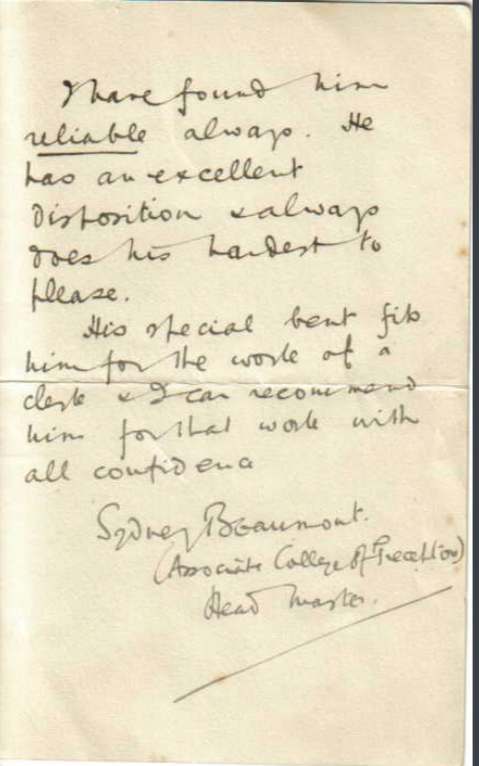 I have found him
reliable always. He
has an excellent
disposition & always
does his hardest to
please.
His special bent fits
him for the work of a
clerk & I can recommend
him for that work with
all confidence
Sydney Beaumont.
(Associate College of Preceptors)
Head Master.